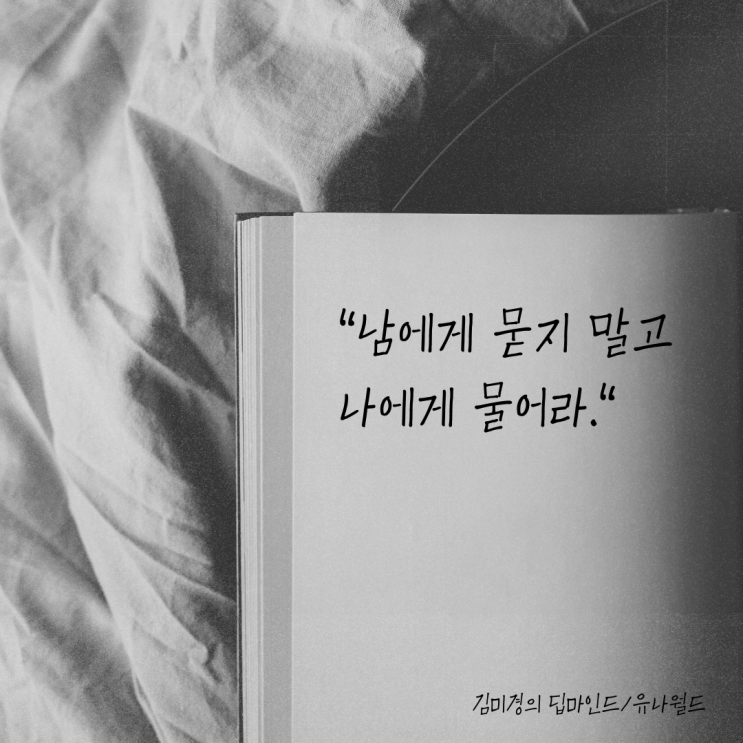 “남에게 묻지 말고
나에게 물어라.“
김미경의 딥마인드/유나월드